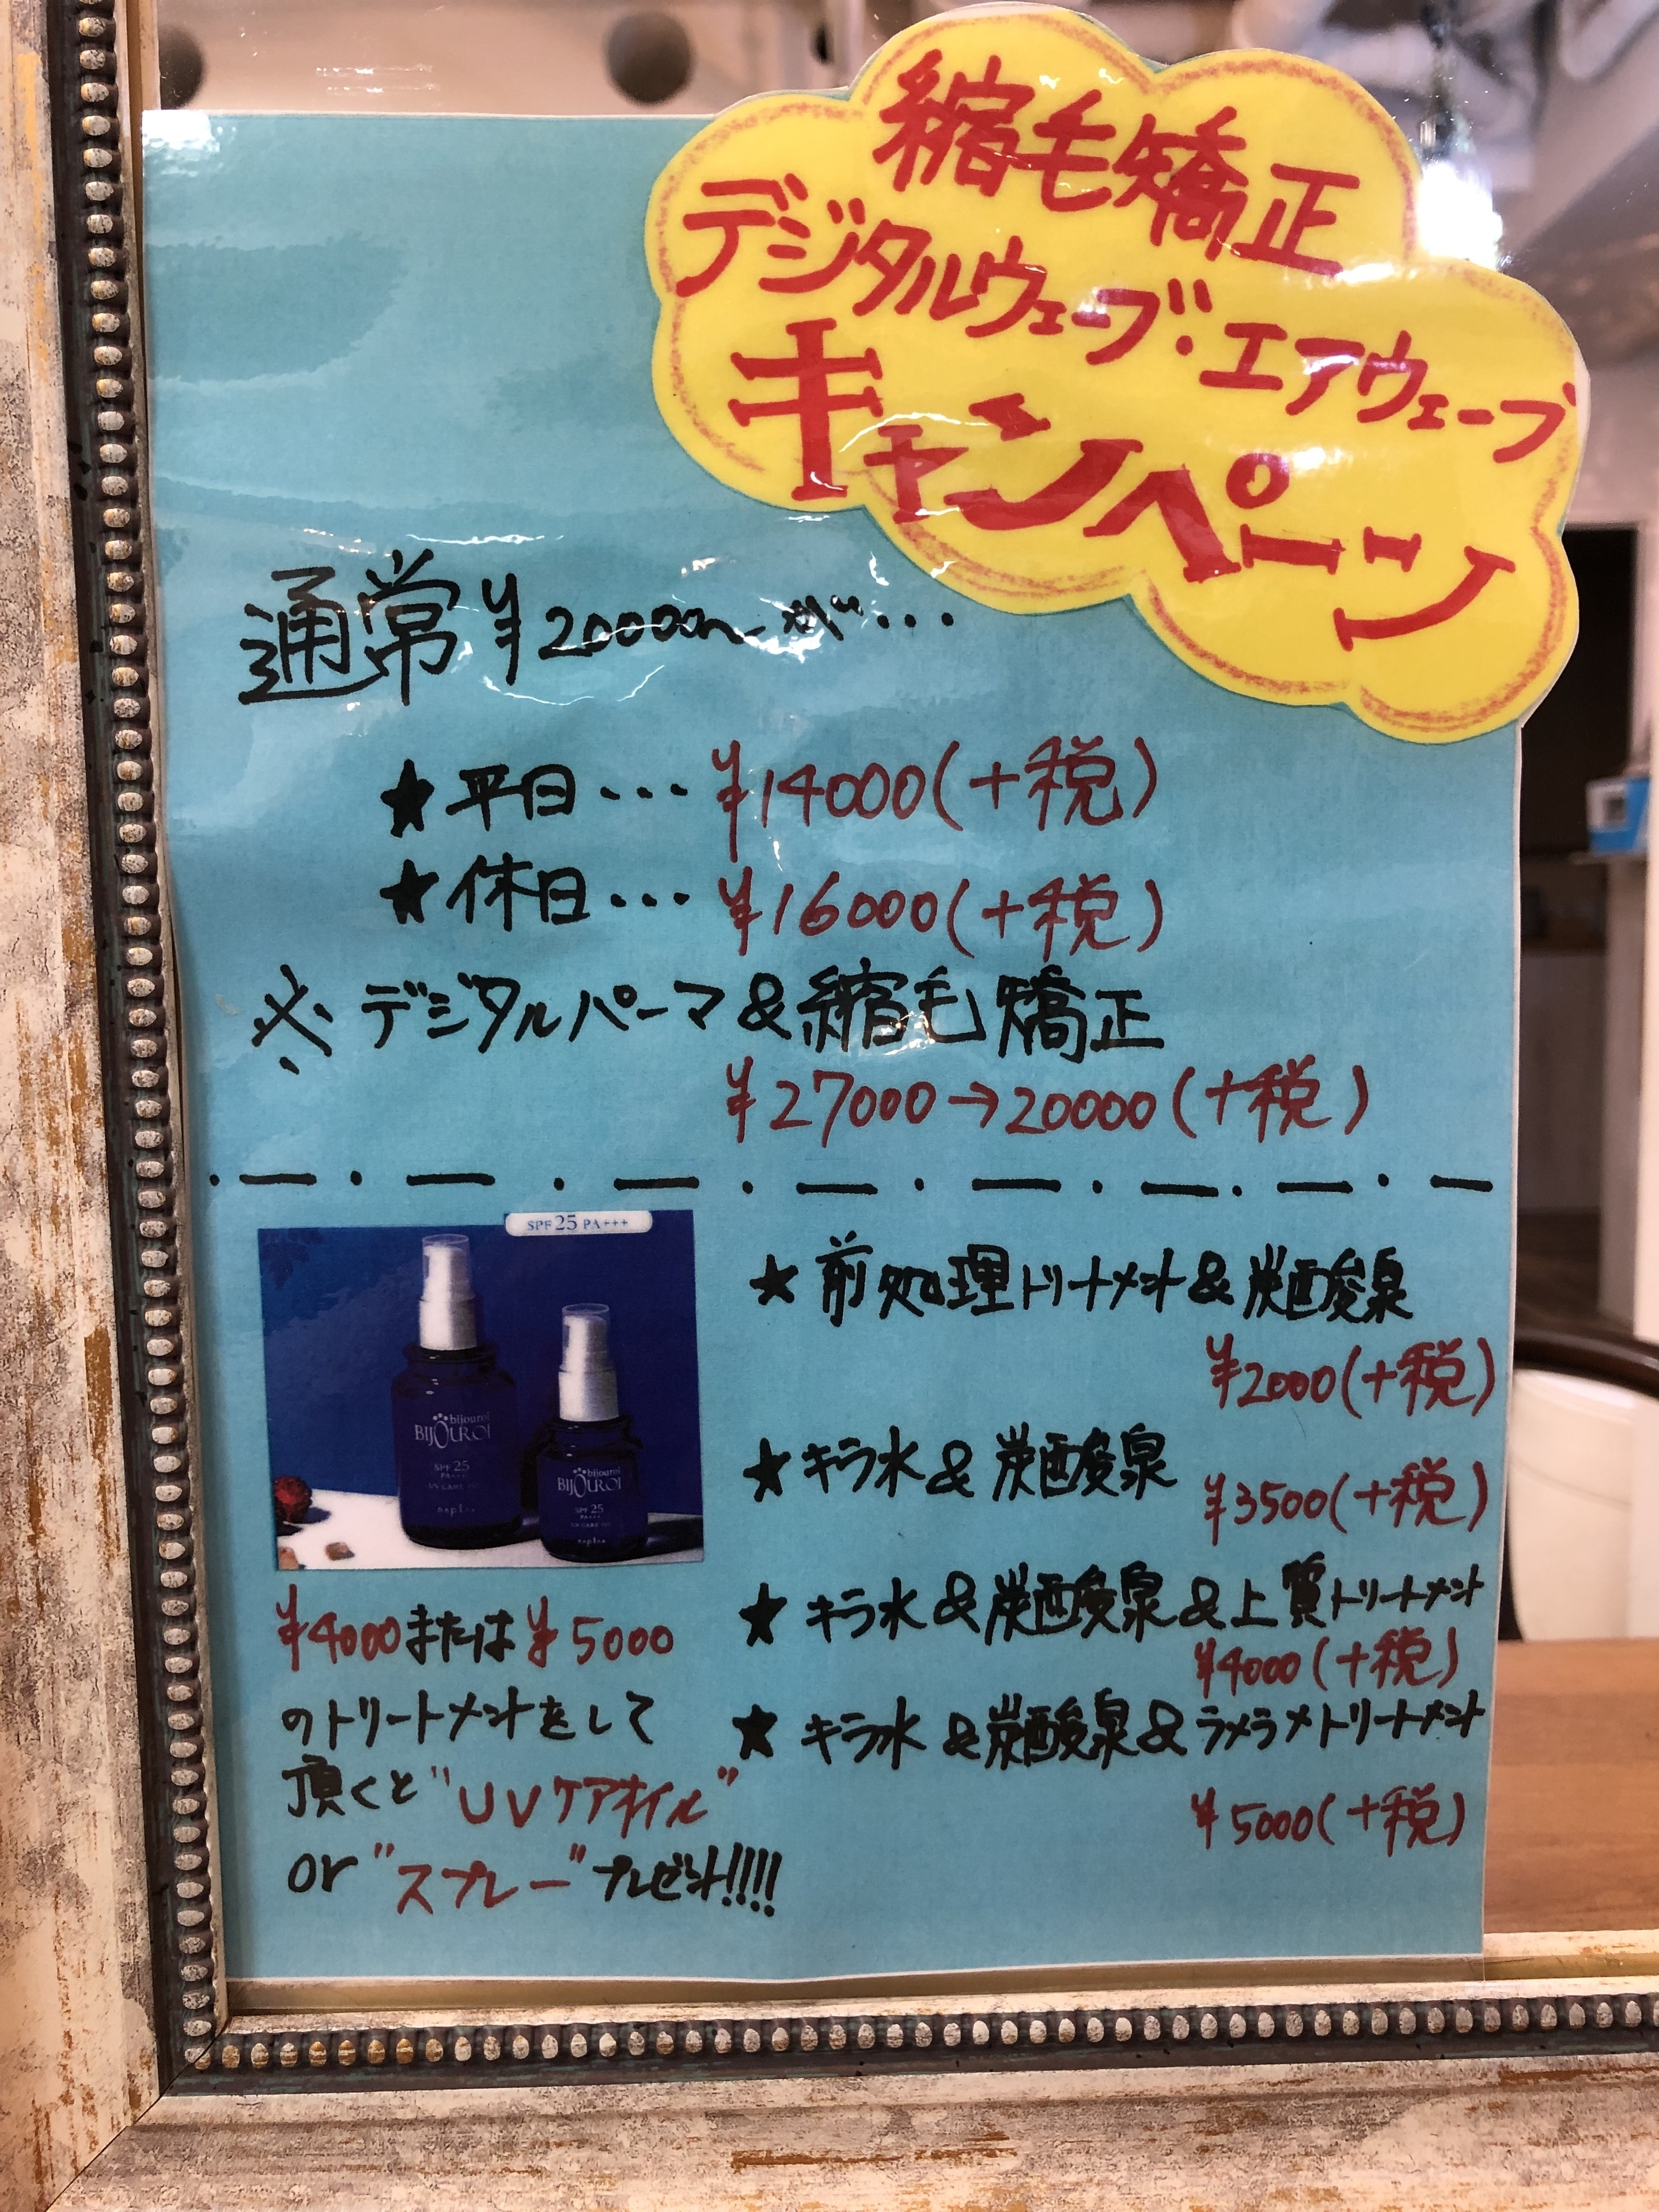 縮毛矯正
デジタルウェーブ・エアウェーブ
キャンペーン
通常¥20000〜が…
★平日…¥14000(+税)
★休日…¥16000(+税)
※デジタルパーマ&縮毛矯正
¥27000→20000(+税)
SPF25 PA+++
bijouroi
BIJOUROI
SPF 25
PA+++
UV CARE
napla
bijouroi
BIJOUROI
SPF 25
PA+++
UV CARE
napla
¥4000または¥5000
のトリートメントをして
頂くと"UVケアオイル"
or"スプレー"プレゼント!!!!
★前処理トリートメント&炭酸泉
¥2000(+税)
★キラ水&炭酸泉
¥3500(+税)
★キラ水&炭酸泉&上質トリートメント
¥4000(+税)
★キラ水&炭酸泉&ラメラメトリートメント
¥5000(+税)